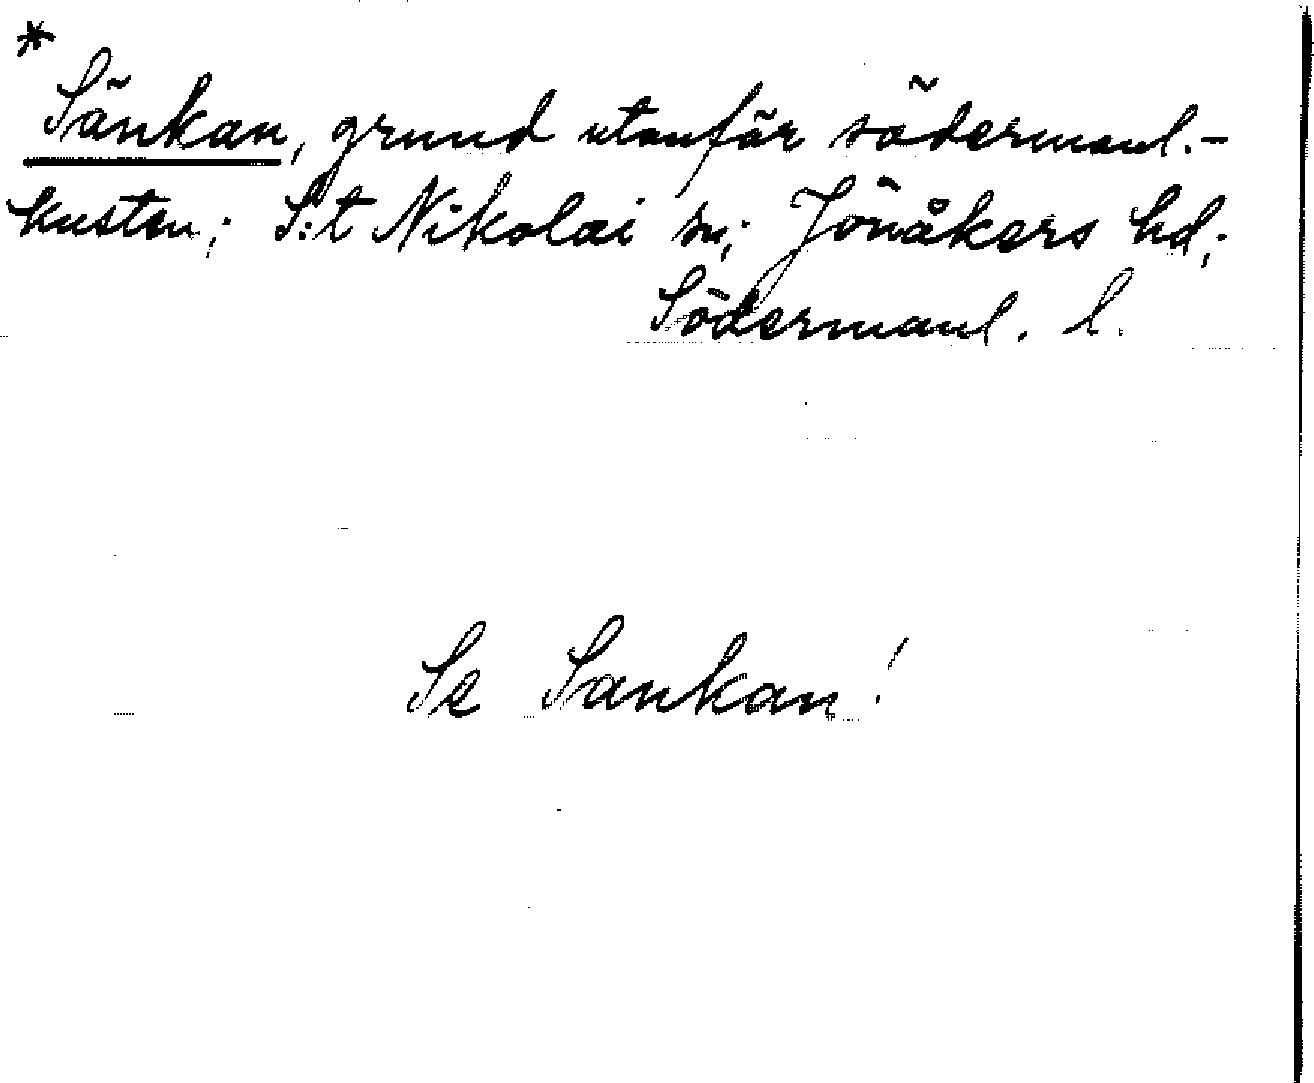 *
Sänkan, grund utanför södermanl.-
kusten; S:t Nikolai sn; Jönåkers hd;
Södermanl. l.
Se Sankan!